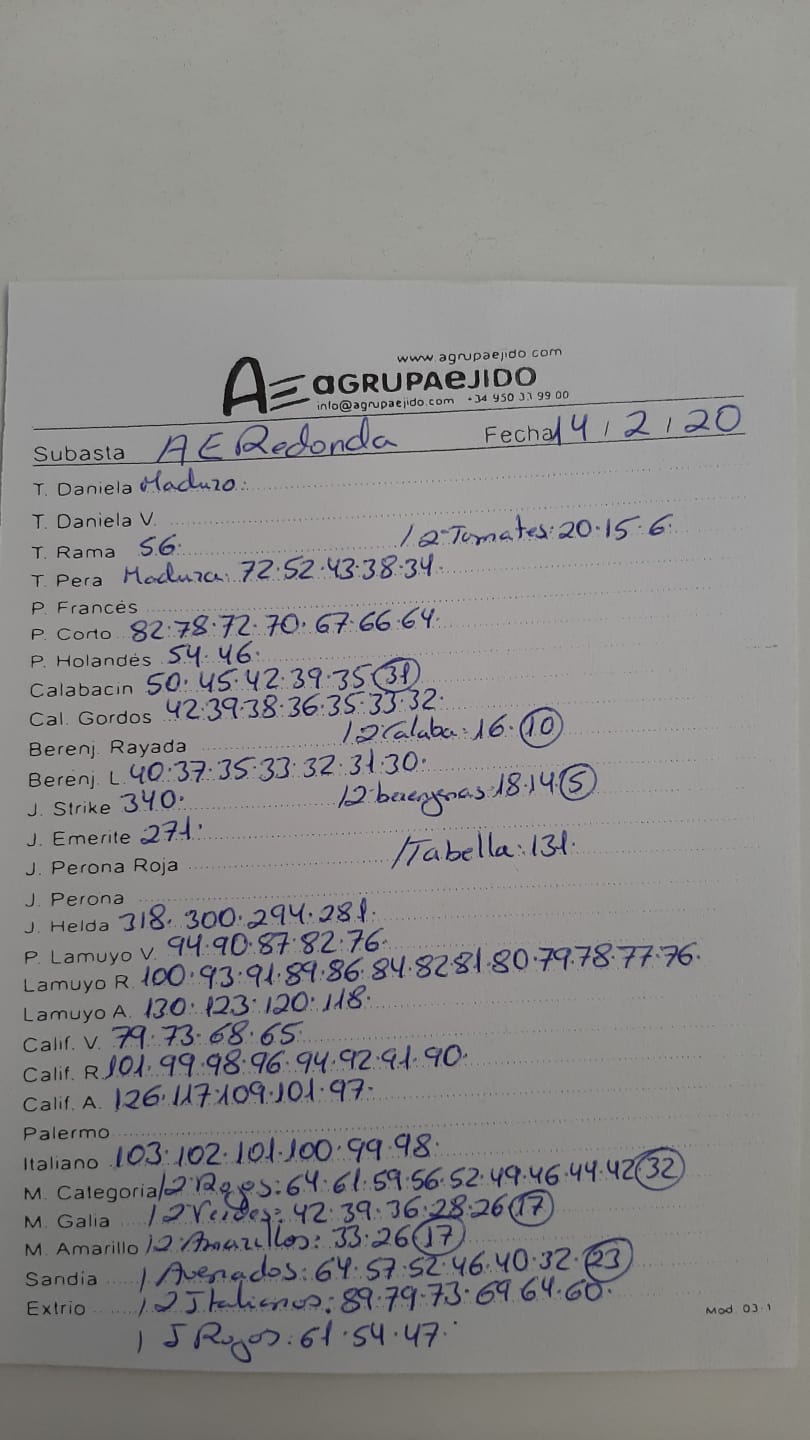 www.agrupaejido.com
AE aGRUPAeJIDO
info@agrupaejido.com +34 950 33 99 00
Subasta AE Redonda Fecha 14 / 2 / 20
T. Daniela Maduro.
T. Daniela V.
T. Rama 56. / 2ª Tomates: 20.15.6.
T. Pera Madura: 72.52.43.38.34.
P. Francés
P. Corto 82.78.72.70.67.66.64.
P. Holandés 54.46.
Calabacin 50.45.42.39.35 (31)
Cal. Gordos 42.39.38.36.35.33.32.
Berenj. Rayada / 2ª Calaba: 16. (10)
Berenj. L. 40.37.35.33.32.31.30.
J. Strike 340. / 2ª berengenas: 18.14. (5)
J. Emerite 271.
J. Perona Roja / Tabella: 131.
J. Perona
J. Helda 318.300.294.281.
P. Lamuyo V. 94.90.87.82.76.
Lamuyo R. 100.93.91.89.86.84.82.81.80.79.78.77.76.
Lamuyo A. 130.123.120.118.
Calif. V. 79.73.68.65.
Calif. R. 101.99.98.96.94.92.91.90.
Calif. A. 126.117.109.101.97.
Palermo
Italiano 103.102.101.100.99.98.
M. Categoria / 2 Rojos: 64.61.59.56.52.49.46.44.42 (32)
M. Galia / 2 Verdes: 42.39.36.28.26 (17)
M. Amarillo / 2 Amarillos: 33.26 (17)
Sandia / Averiados: 64.57.52.46.40.32. (23)
Extrio / 2 Italianos: 89.79.73.69.64.60.
Mod. 03.1
/ J Rojos: 61.54.47.